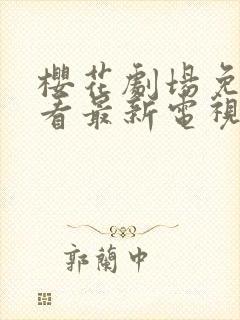 櫻花劇場免
看最新電視
郭蘭中